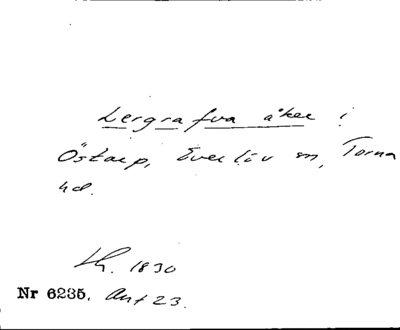 Lergrafva åker i
Östarp, Everlöv sn, Torna
hd.
Lh. 1830
Nr 6235. Akt 23.